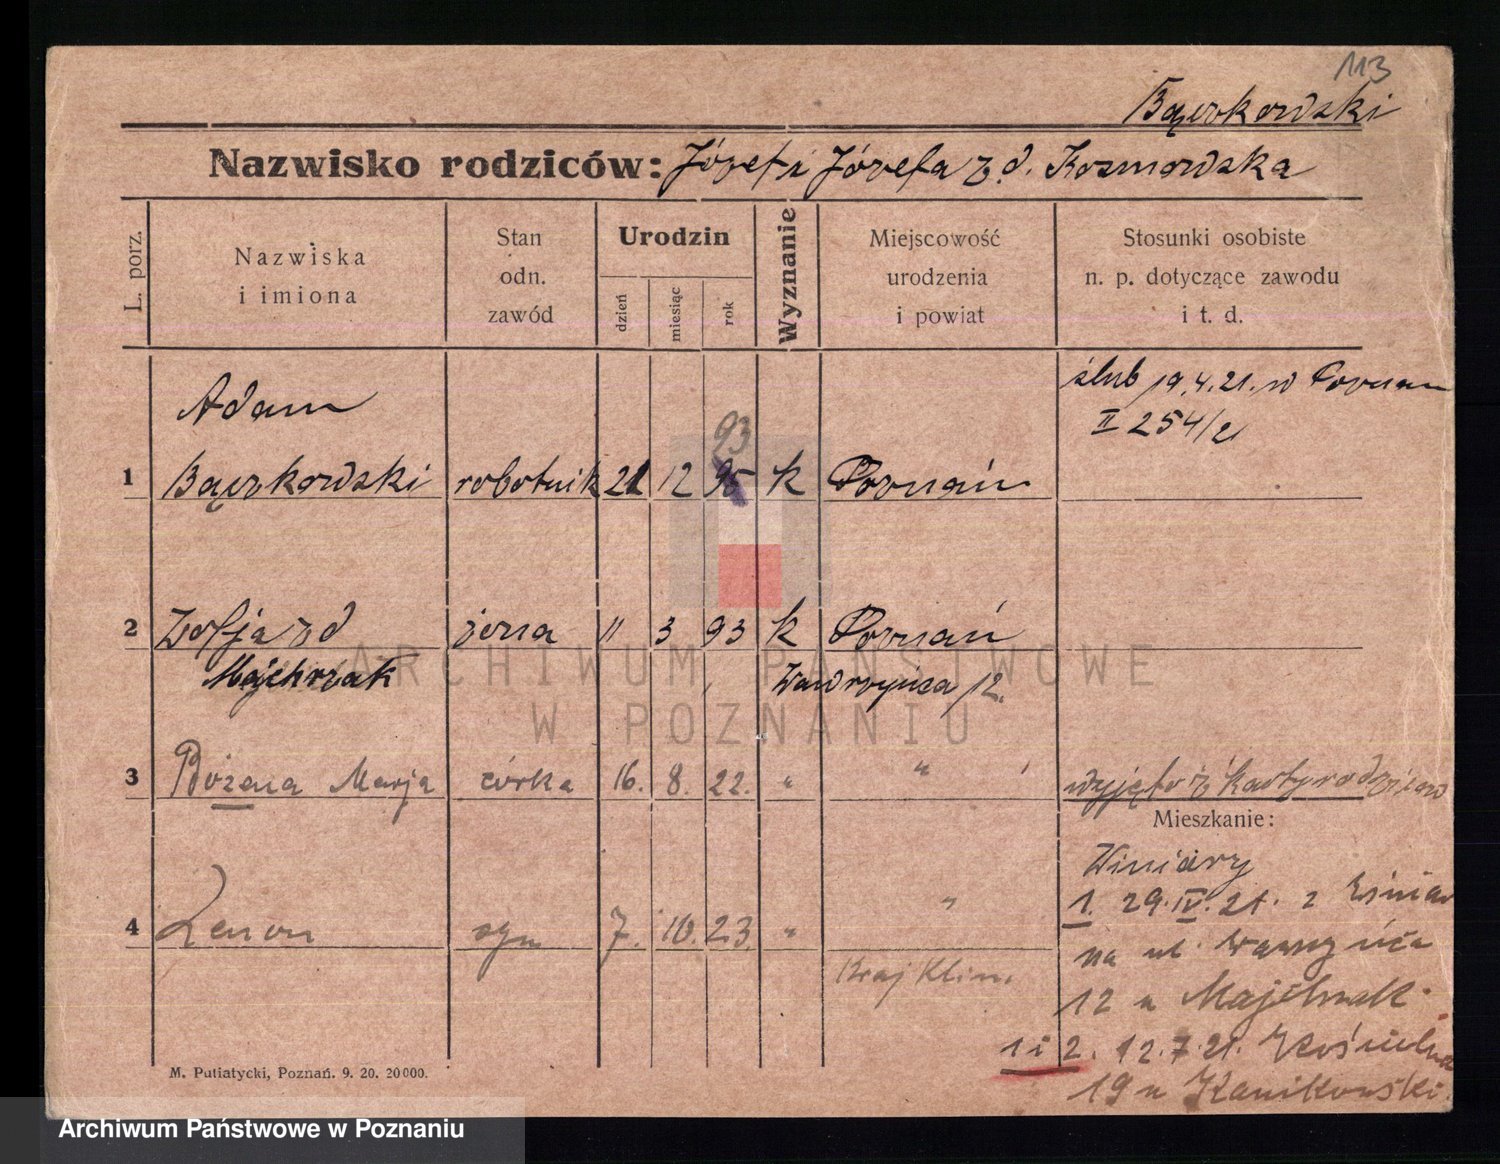 113
Bączkowski
Nazwisko rodziców: Józef i Józefa z d. Kosmowska
L. porz.
Nazwiska
i imiona
Stan
odn.
zawód
Urodzin
dzień
miesiąc
rok
Wyznanie
Miejscowość
urodzenia
i powiat
Stosunki osobiste
n. p. dotyczące zawodu
i t. d.
ślub 19.4.21. w Poznan
II 254/21
Adam
93
1 Bączkowski robotnik 21 12 95 k Poznań
2 Zofja z d żona 11 3 93 k Poznań
Majchrzak Wawrzyńca 12.
3 Bożena Marja córka 16. 8. 22. " "
wyjęto z karty rodziców
Mieszkanie:
Winiary
4 Zenon syn 7. 10. 23. " "
1. 29.IV.21. z
na ul Wawrzyńca
Kraj Klin.
12 u Majchrzak
1 i 2. 12.7.21. Kościelna
19 u Kanikowski.
M. Putiatycki, Poznań. 9. 20. 20000.
ARCHIWUM PAŃSTWOWE
W POZNANIU
Archiwum Państwowe w Poznaniu